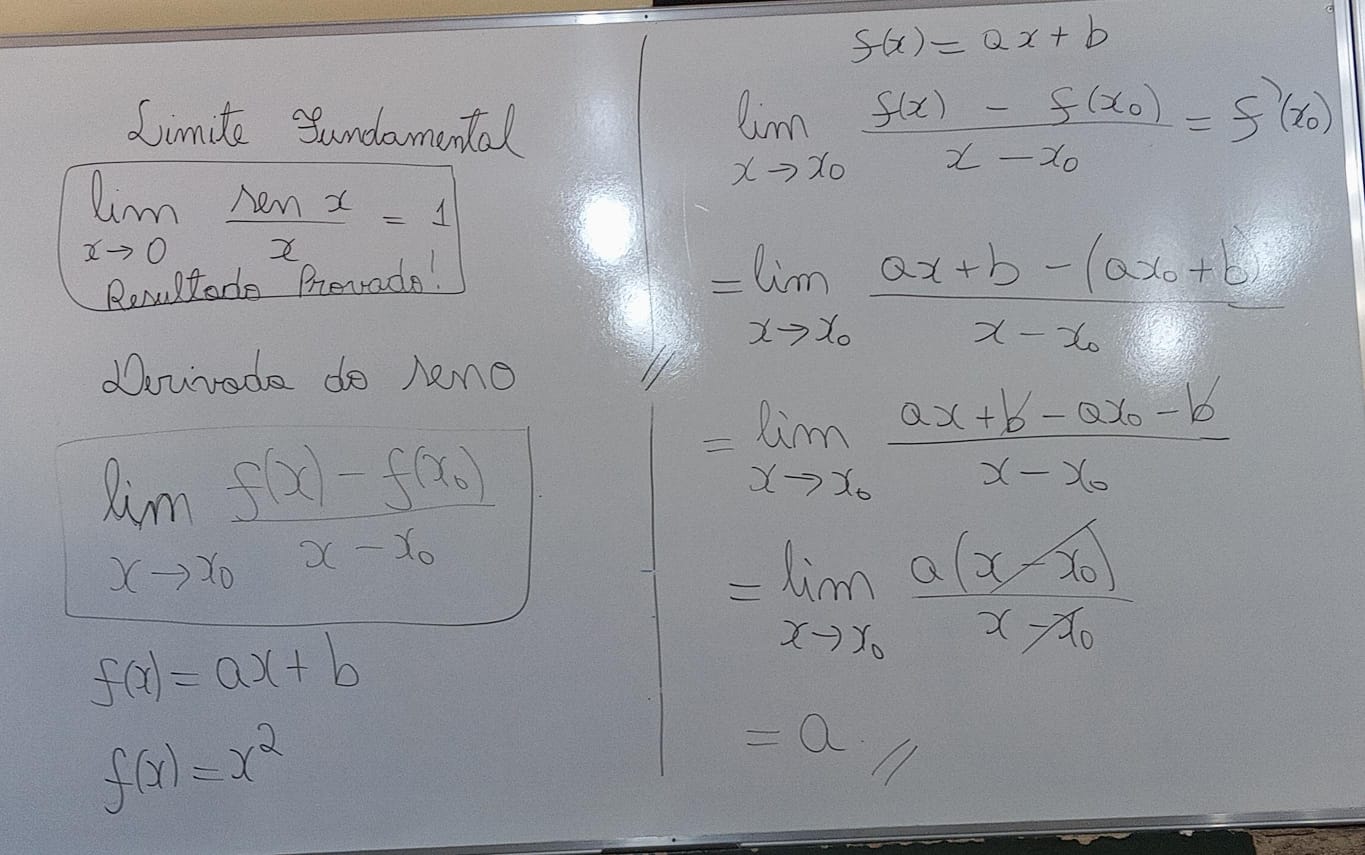 Limite Fundamental
lim sen x / x = 1
x → 0
Resultado Provado!
Derivada do seno
lim f(x) − f(x₀) / x − x₀
x → x₀
f(x) = ax + b
f(x) = x²
f(x) = ax + b
lim f(x) − f(x₀) / x − x₀ = f'(x₀)
x → x₀
= lim ax + b − (ax₀ + b) / x − x₀
x → x₀
= lim ax + b − ax₀ − b / x − x₀
x → x₀
= lim a(x − x₀) / x − x₀
x → x₀
= a. //